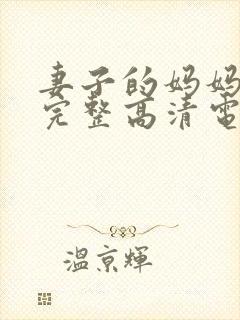 妻子的妈妈
完整高清电
温京辉